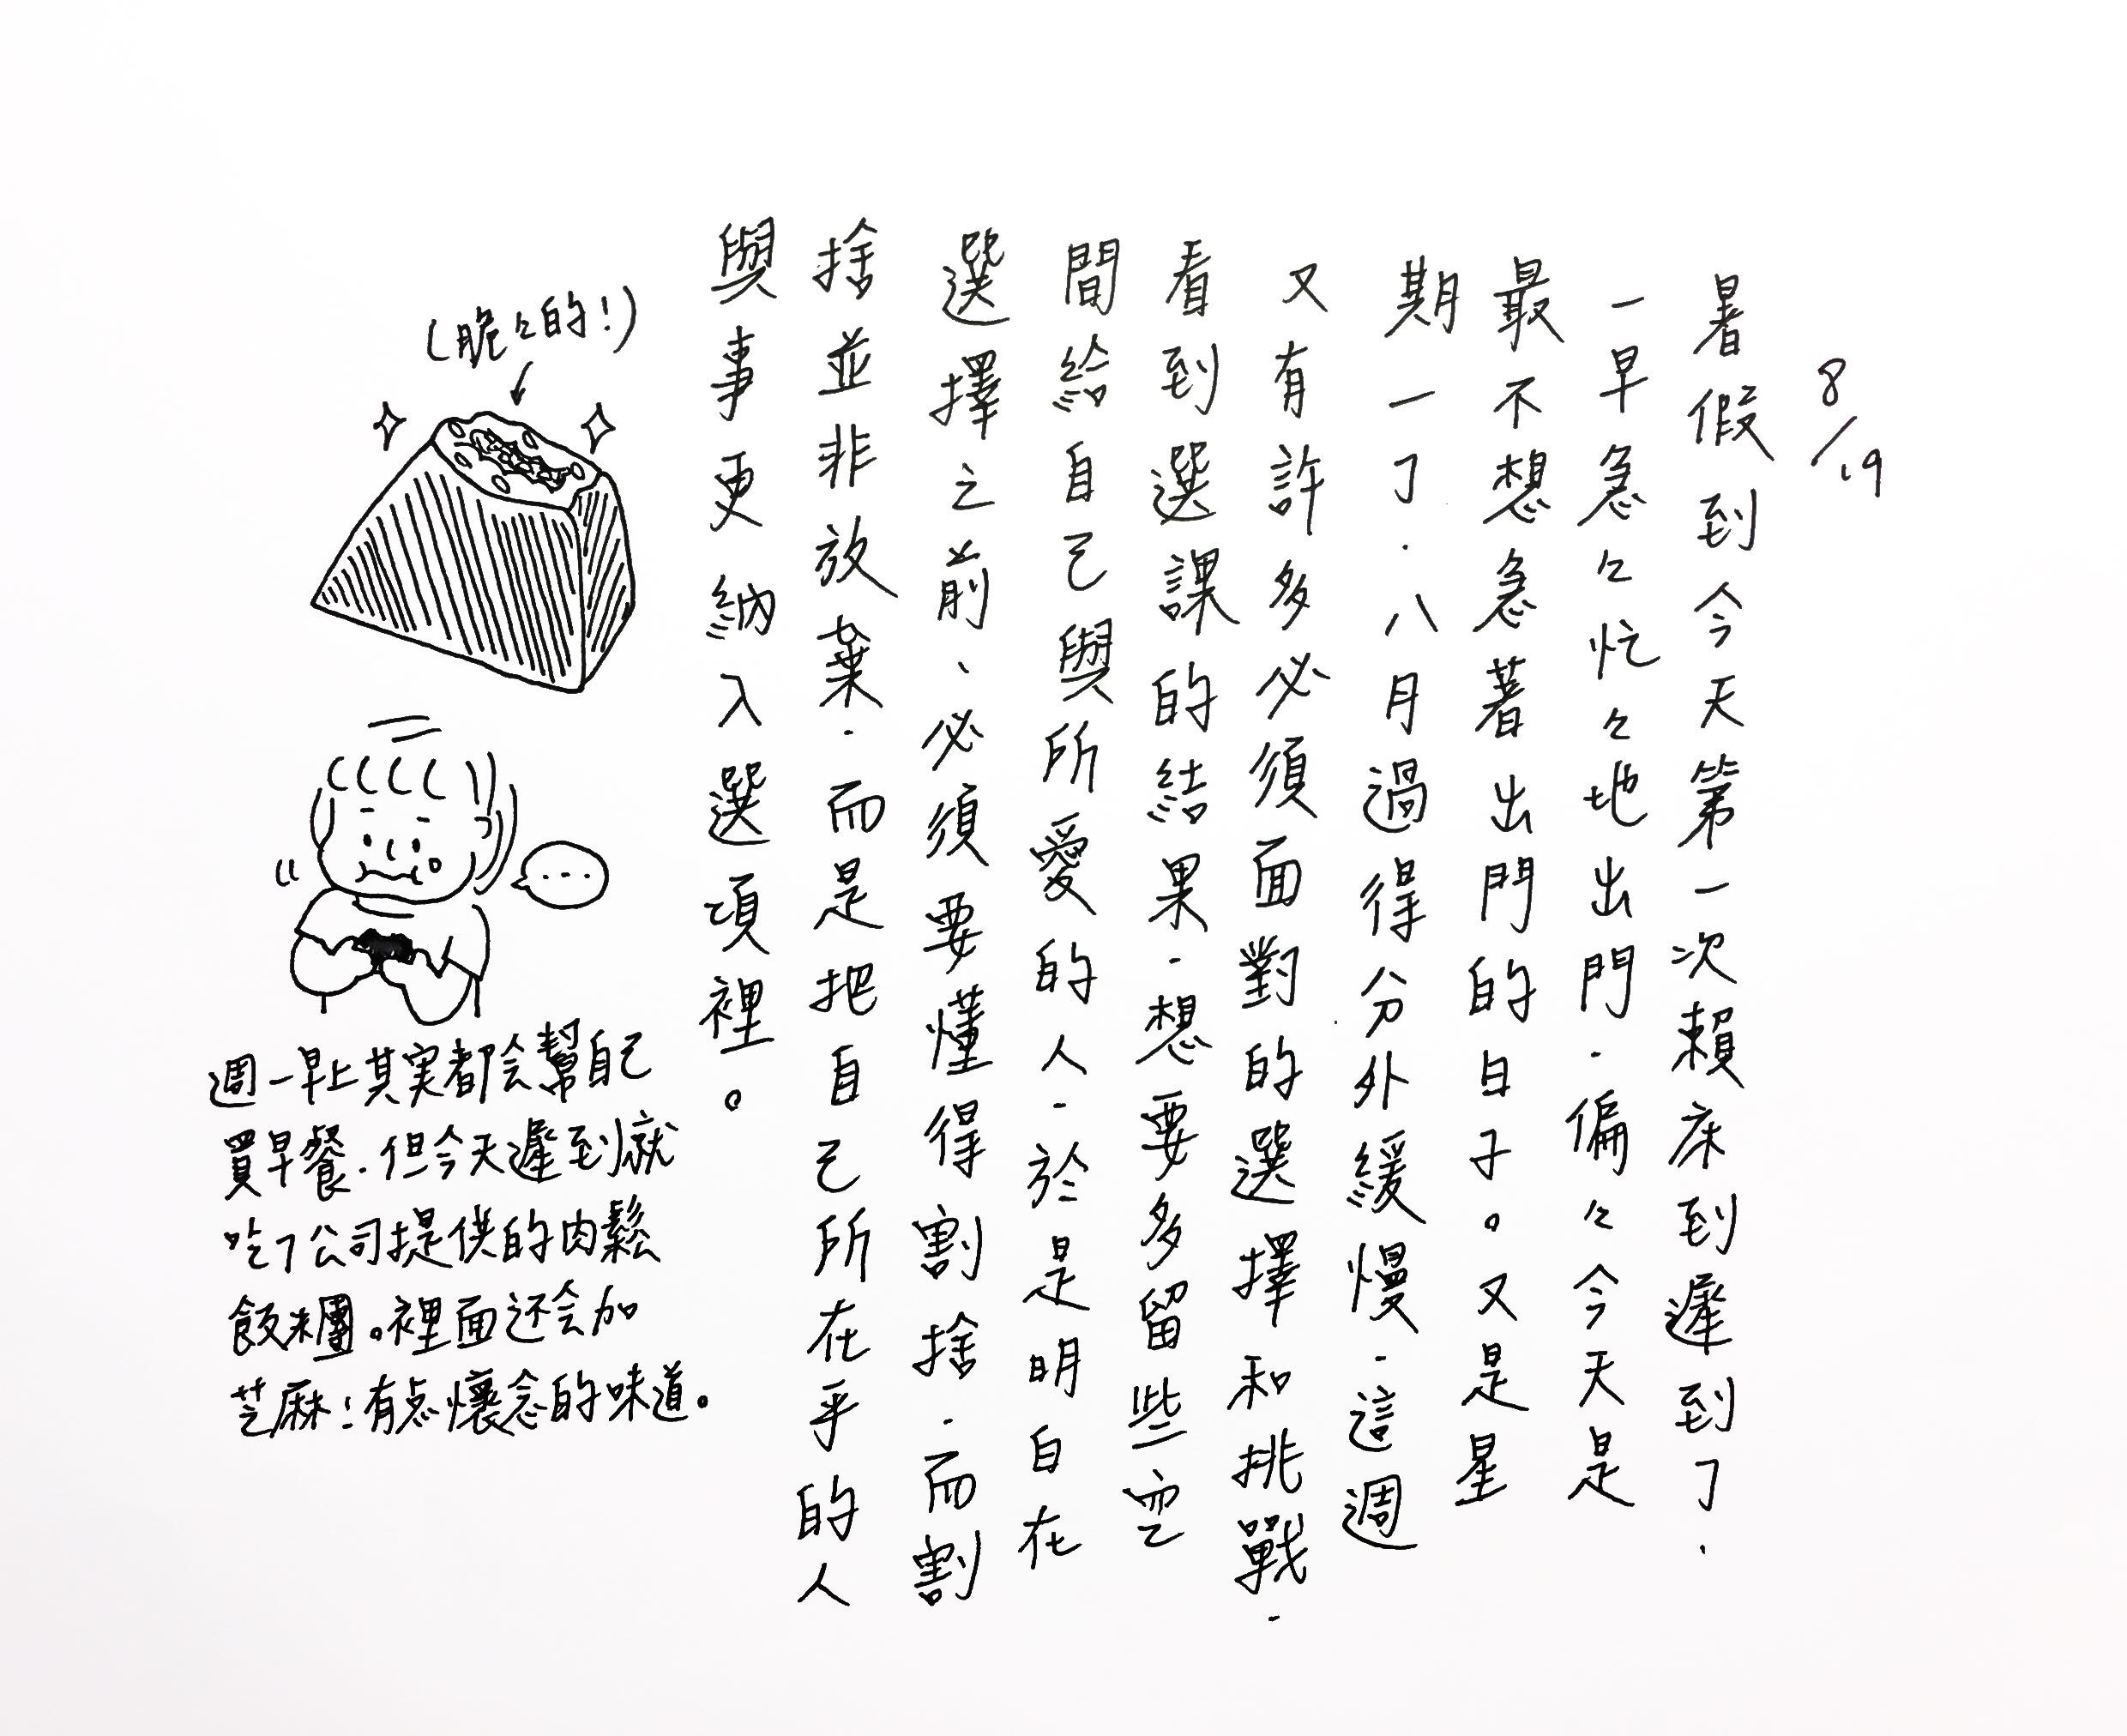 8/19
暑假到今天第一次賴床到遲到了.
一早急々忙々地出門.偏々今天是
最不想急著出門的日子。又是星
期一了.八月過得分外緩慢.這週
又有許多必須面對的選擇和挑戰.
看到選課的結果.想要多留些空
間給自己與所愛的人.於是明白在
選擇之前、必須要懂得割捨.而割
捨並非放棄.而是把自己所在乎的人
與事更納入選項裡。
(脆々的!)
...
週一早上其実都会幫自己
買早餐.但今天遲到就
吃了公司提供的肉鬆
飯糰。裡面还会加
芝麻!有点懷念的味道。